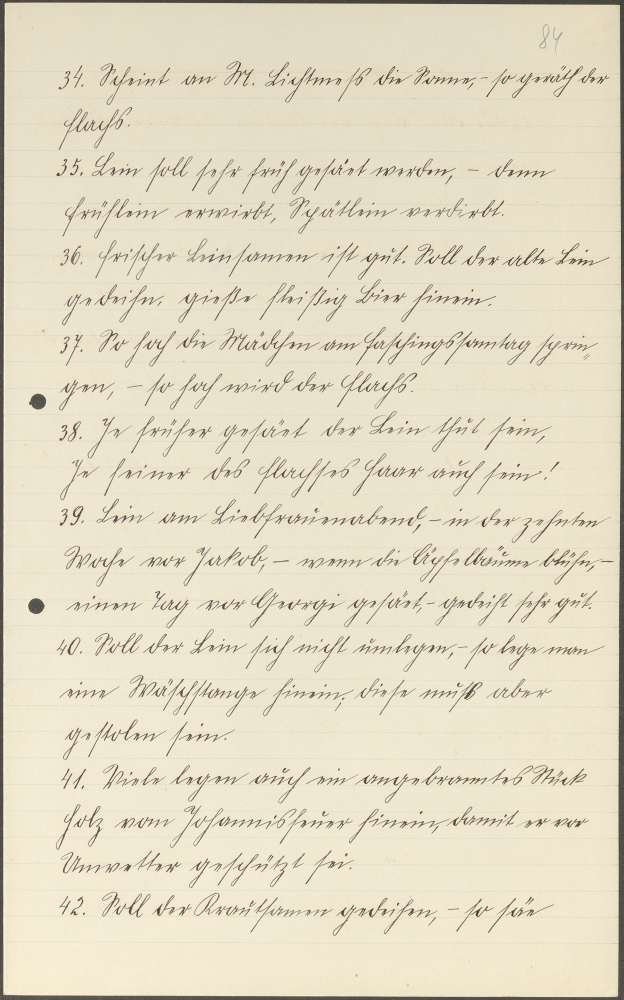 84
34. Scheint an M. Lichtmeß die Sonne,- so geräth der
Flachs.
35. Lein soll sehr früh gesäet werden, - denn
Frühlein erwirbt, Spätlein verdirbt.
36. Frischer Leinsamen ist gut. Soll der alte Lein
gedeihn, gieße fleißig Bier hinein.
37. So hoch die Mädchen am Faschingssamtag sprin„
gen, - so hoch wird der Flachs.
38. Je früher gesäet der Lein thut sein,
Je feiner des Flachses Haar auch sein!
39. Lein am Liebfrauenabend,- in der zehnten
Woche vor Jakob, - wenn die Äpfelbäume blühn,-
einen Tag vor Georgi gesäet,- gedeiht sehr gut.
40. Soll der Lein sich nicht umlegen,- so lege man
eine Wäschstange hinein; diese muß aber
gestolen sein.
41. Viele legen auch ein angebranntes Stück
Holz vom Johannisfeuer hinein, damit er vor
Unwetter geschützt sei.
42. Soll der Krautsamen gedeihen, - so säe